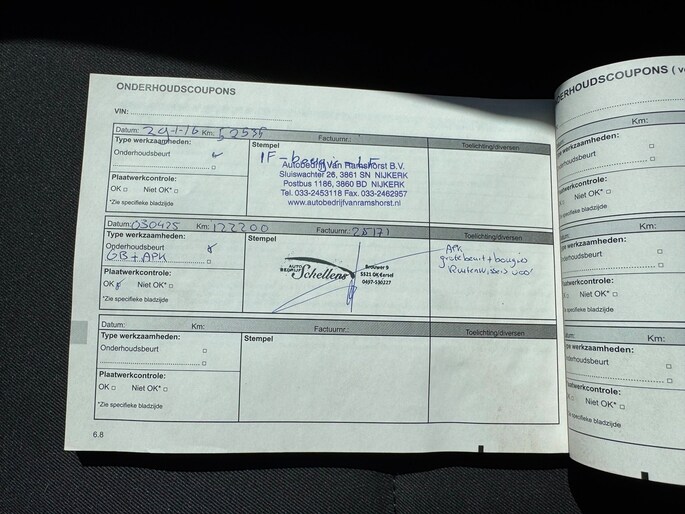 ONDERHOUDSCOUPONS
VIN:
Datum: 29-1-16 Km: 52535 Factuurnr.: Toelichting/diversen
Type werkzaamheden:
Onderhoudsbeurt
Plaatwerkcontrole:
OK Niet OK*
*Zie specifieke bladzijde
Stempel
Autobedrijf Van Ramshorst B.V.
Sluiswachter 26, 3861 SN NIJKERK
Postbus 1186, 3860 BD NIJKERK
Tel. 033-2453118 Fax. 033-2462957
www.autobedrijfvanramshorst.nl
Datum: 030425 Km: 122200 Factuurnr.: 25171 Toelichting/diversen
Type werkzaamheden:
Onderhoudsbeurt
GB + APK
Plaatwerkcontrole:
OK Niet OK*
*Zie specifieke bladzijde
Stempel
AUTO
BEDRIJF
Schellens
Brouwer 9
5521 DK Eersel
0497-530227
APK
grote beurt + bougies
Ruitenwissers voor
Datum: Km: Factuurnr.: Toelichting/diversen
Type werkzaamheden:
Onderhoudsbeurt
Plaatwerkcontrole:
OK Niet OK*
*Zie specifieke bladzijde
Stempel
6.8
DERHOUDSCOUPONS
Km:
werkzaamheden:
houdsbeurt
Niet OK*
specifieke bladzijde
Km:
werkzaamheden:
Niet OK*
specifieke bladzijde
Km:
werkzaamheden:
Niet OK*
specifieke bladzijde